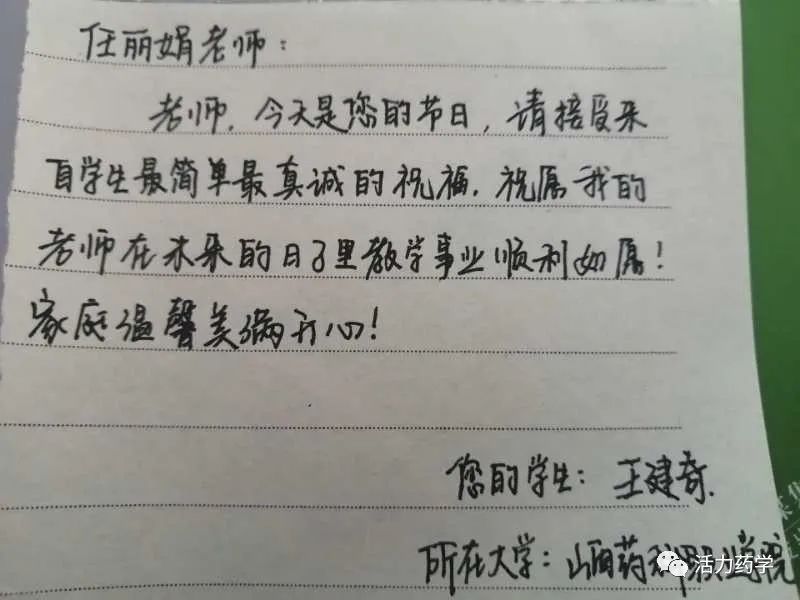 任丽娟老师：
老师，今天是您的节日，请接受来
自学生最简单最真诚的祝福。祝愿我的
老师在未来的日子里教学事业顺利如愿！
家庭温馨美满开心！
您的学生：王建奇.
所在大学：山西药科职业学院
活力药学